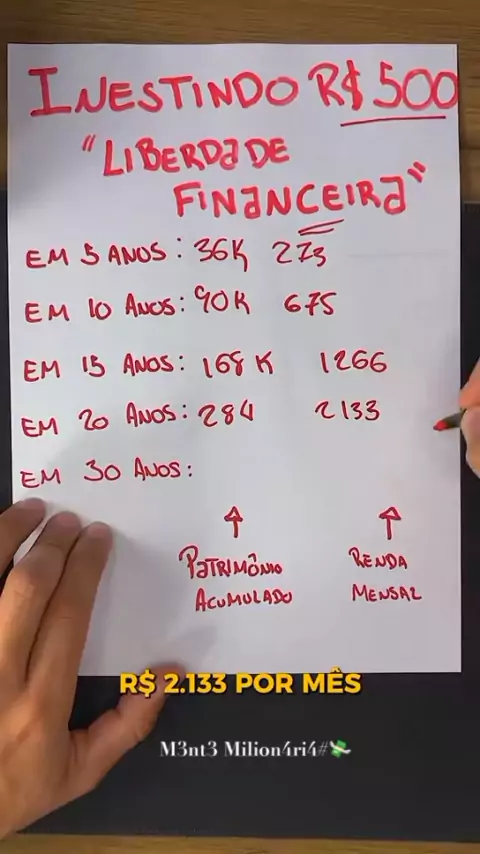 INESTINDO R$ 500
"LIBERDADE
FINANCEIRA"
EM 5 ANOS: 36K 273
EM 10 ANOS: 90K 675
EM 15 ANOS: 168K 1266
EM 20 ANOS: 284 2133
EM 30 ANOS:
PATRIMÔNIO
ACUMULADO
RENDA
MENSAL
R$ 2.133 POR MÊS
M3nt3 Milion4ri4#💸